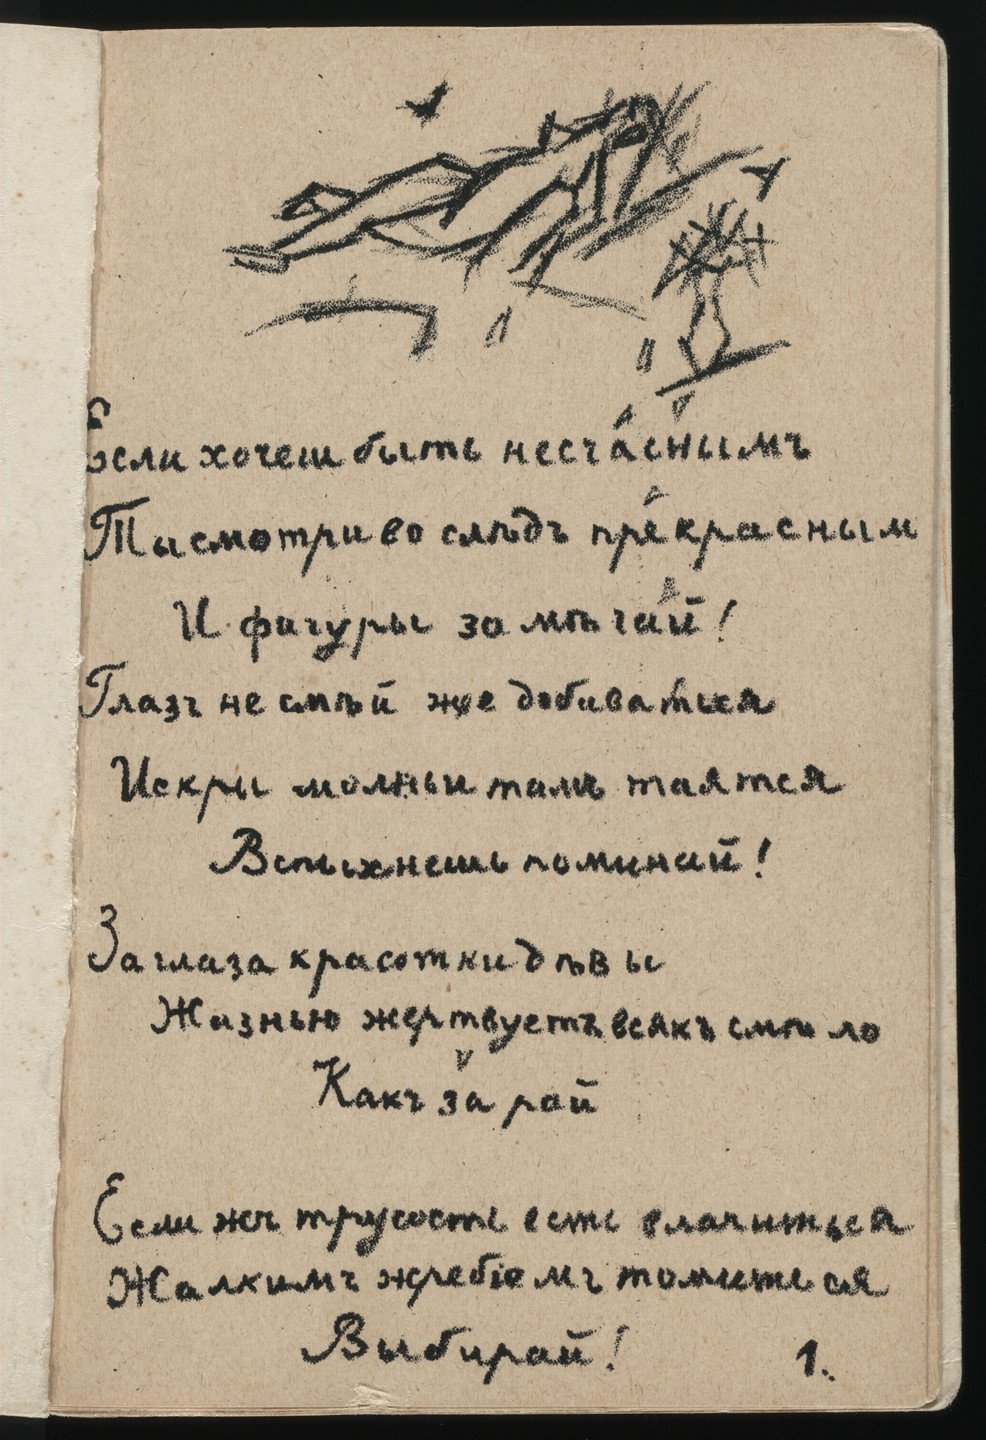 Если хочеш быть несчаснымъ
Ты смотри во слѣдъ прекрасным
И фигуры замѣчай!
Глазъ не смѣй же добиваться
Искры молньи тамъ таятся
Вспыхнешь поминай!
За глаза красотки дѣвы
Жизнью жертвуетъ всякъ смѣло
Какъ за рай
Если жъ трусость есть влачиться
Жалкимъ жребіемъ томиться
Выбирай!
1.